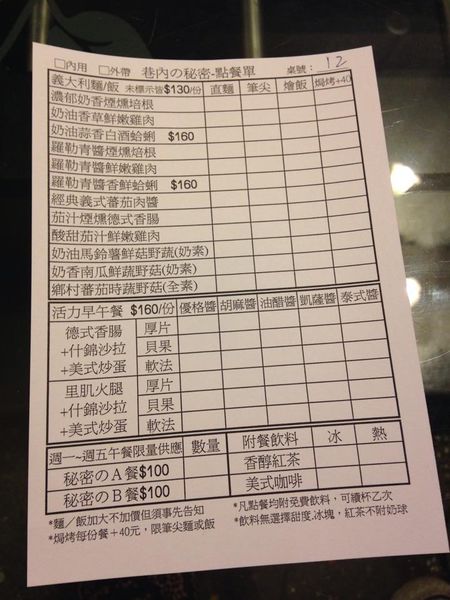 □內用 □外帶 巷內の秘密-點餐單 桌號：12
義大利麵/飯 未標示皆$130/份 直麵 筆尖 燴飯 焗烤+40
濃郁奶香煙燻培根
奶油香草鮮嫩雞肉
奶油蒜香白酒蛤蜊 $160
羅勒青醬煙燻焙根
羅勒青醬鮮嫩雞肉
羅勒青醬香鮮蛤蜊 $160
經典義式蕃茄肉醬
茄汁煙燻德式香腸
酸甜茄汁鮮嫩雞肉
奶油馬鈴薯鮮菇野蔬(奶素)
奶香南瓜鮮蔬野菇(奶素)
鄉村蕃茄時蔬野菇(全素)
活力早午餐 $160/份 優格醬 胡麻醬 油醋醬 凱薩醬 泰式醬
德式香腸 厚片
+什錦沙拉 貝果
+美式炒蛋 軟法
里肌火腿 厚片
+什錦沙拉 貝果
+美式炒蛋 軟法
週一~週五午餐限量供應 數量 附餐飲料 冰 熱
秘密のA餐$100 香醇紅茶
秘密のB餐$100 美式咖啡
*麵／飯加大不加價但須事先告知 *凡點餐均附免費飲料，可續杯乙次
*焗烤每份餐＋40元，限筆尖麵或飯 *飲料無選擇甜度.冰塊，紅茶不附奶球